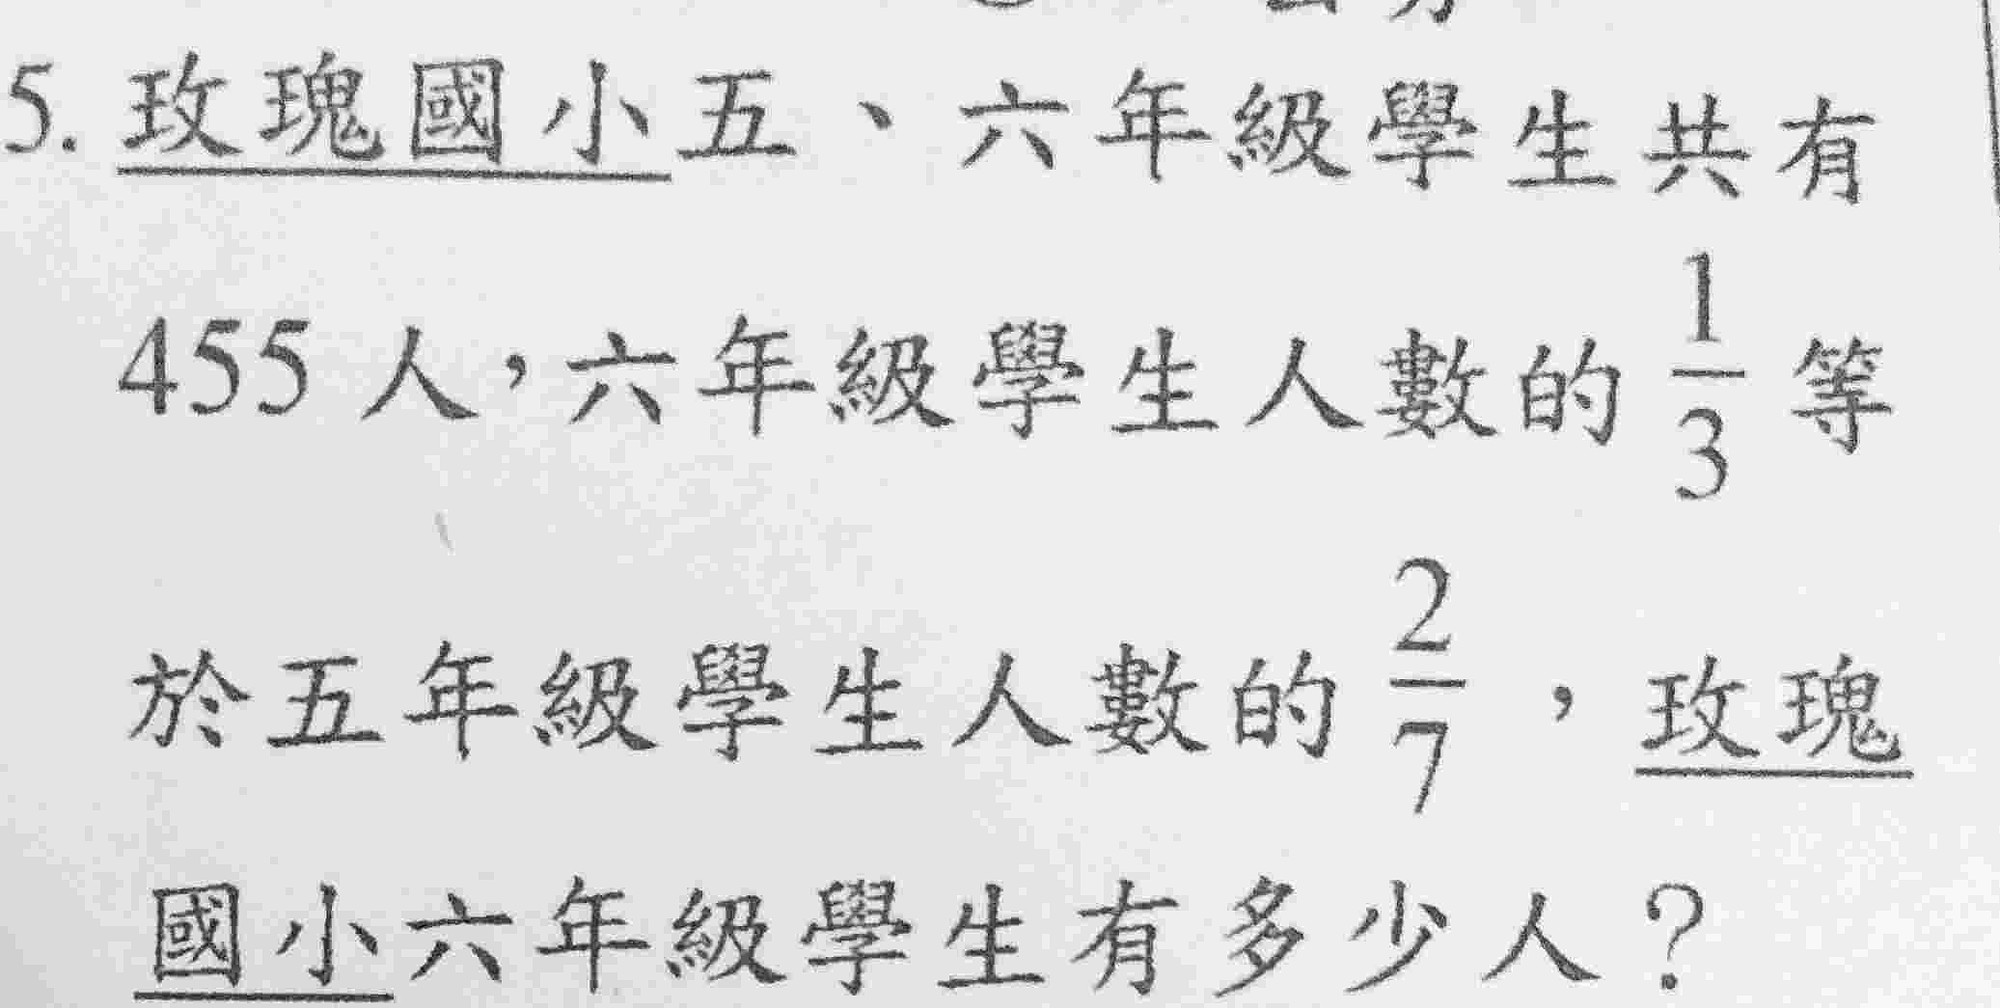 5. 玫瑰國小五、六年級學生共有
455 人，六年級學生人數的 1/3 等
於五年級學生人數的 2/7 ，玫瑰
國小六年級學生有多少人？